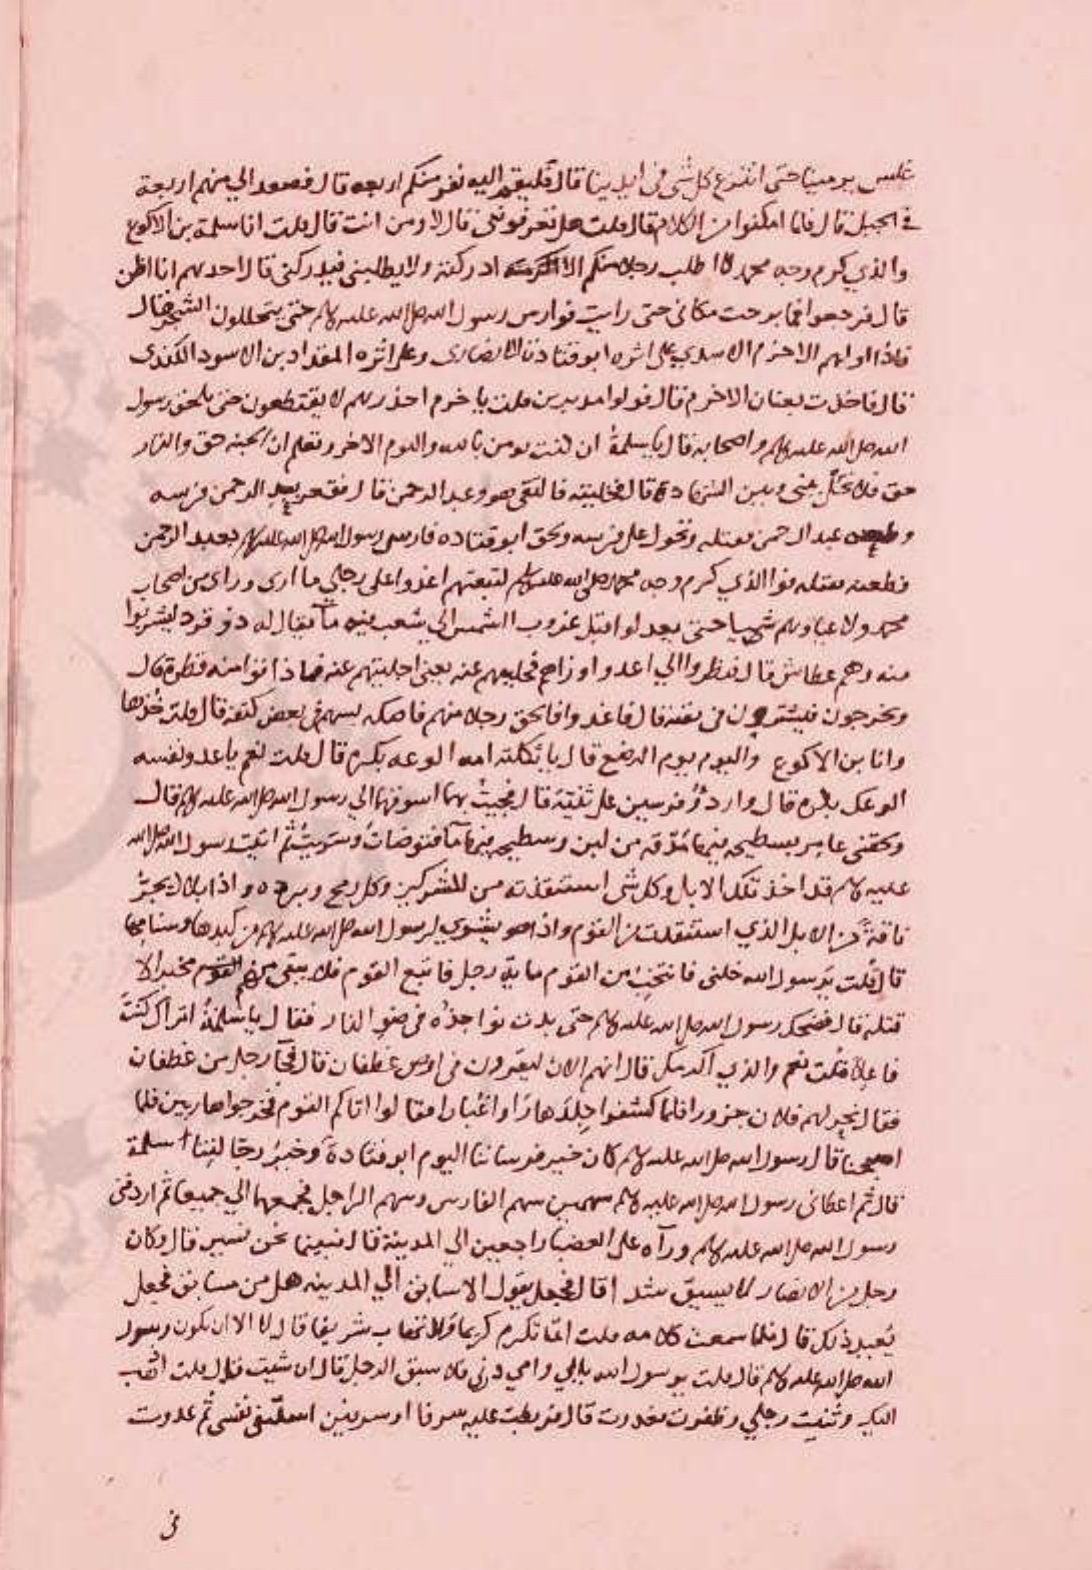 غلس يرمينا حتى انتزع كل شي في ايدينا قال فليقم اليه نفر منكم اربعه قال فصعد الي منهم اربعة
في الجبل قال فلما امكنوا من الكلام قال قلت هل تعرفوني قالوا لا ومن انت قال قلت انا سلمة بن الاكوع
والذي كرم وجه محمد لا اطلب رجلا منكم الا ادركته ولا يطلبني فيدركني قال احدهم انا اظن
قال فرجعوا فما برحت مكاني حتى رايت فوارس رسول الله صلى الله عليه وسلم حتى يتخللون الشجر قال
فاذا اولهم الاخرم الاسدي على اثره ابو قتادة الانصاري وعلى اثره المقداد بن الاسود الكندي
قال فاخذت بعنان الاخرم قال فولوا مدبرين قلت يا خرم احذرهم لا يقتطعون حتى يلحق رسول
الله صلى الله عليه وسلم واصحابه قال يا سلمة ان كنت تومن بالله واليوم الاخر وتعلم ان الجنه حق والنار
حق فلا تحل بيني وبين الشهادة قال فخليته فالتقى هو وعبد الرحمن قال فعقر بعبد الرحمن فرسه
وطعنه عبد الرحمن فقتله وتحول على فرسه ولحق ابو قتاده فارس رسول الله صلى الله عليه وسلم بعبد الرحمن
فطعنه فقتله فوا الذي كرم وجه محمد صلى الله عليه وسلم لتبعتهم اعدوا على رجلي ما ارى وراي من اصحاب
محمد ولا غبارهم شيا حتى يعدلوا قبل غروب الشمس الى شعب فيه مآ يقال له ذو قرد ليشربوا
منه وهم عطاش قال فنظروا الي اعدو اوراهم فحليتهم عنه يعني اجليتهم عنه فما ذاقوا منه قطرة قال
ويخرجون فيشتدون في ثنية قال فاعدوا فالحق رجلا منهم فاصكه بسهم في بعض كتفه قال قلت خذها
وانا بن الاكوع واليوم يوم الرضع قال يا ثكلته امه اكوعه بكرة قال قلت نعم يا عدو نفسه
اكوعك بكرة قال واردوا فرسين على ثنية قال فجيت بهما اسوقهما الي رسول الله صلى الله عليه وسلم قال
ولحقني عامر بسطيحه فيها مذقه من لبن وسطيحه فيها مآ فتوضات وشربت ثم اتيت رسول الله صلى الله
عليه وسلم قد اخذ تلك الابل وكل شي استنقذته من المشركين وكل رمح وبرده واذا بلال نحر
ناقة من الابل الذي استنقذت من القوم واذا هو يشوي لرسول الله صلى الله عليه وسلم من كبدها وسنامها
قال قلت يرسول الله خلني فانتخب من القوم ماية رجل فاتبع القوم فلا يبقى منهم مخبر الا
قتلته قال فضحك رسول الله صلى الله عليه وسلم حتى بدت نواجذه في ضو النار فقال يا سلمة اتراك كنت
فاعلا قلت نعم والذي اكرمك قال انهم الان ليقرون في ارض غطفان قال فجآ رجل من غطفان
فقال نحر لهم فلان جزورا فلما كشفوا جلدها راوا غبارا فقالوا اتاكم القوم فخرجوا هاربين فلما
اصبحنا قال رسول الله صلى الله عليه وسلم كان خير فرساننا اليوم ابو قتادة وخير رجالنا سلمة
قال ثم اعطاني رسول الله صلى الله عليه وسلم سهمين سهم الفارس وسهم الراجل فجمعهما الي جميعا ثم اردفني
رسول الله صلى الله عليه وسلم ورآه على العضبا راجعين الي المدينة قال فبينما نحن نسير قال وكان
رجل من الانصار لا يسبق شدا قال فجعل يقول الا سابق الي المدينه هل من مسابق فجعل
يعيد ذلك قال فلما سمعت كلامه قلت اما تكرم كريما ولا تهاب شريفا قال لا الا ان يكون رسول
الله صلى الله عليه وسلم قال قلت يرسول الله بابي وامي ذرني فلا سبق الرجل قال ان شيت قال قلت اذهب
اليك وثنيت رجلي وطفرت فعدوت قال فربطت عليه شرفا او شرفين استبقي نفسي ثم عدوت
في